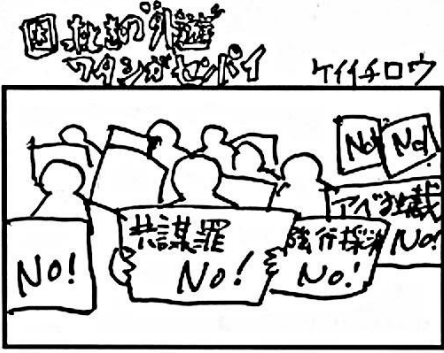 困ったときの外遊
ワタシがセンパイ
ケイイチロウ
No!
No!
アベ独裁
No!
共謀罪
No!
強行採決
No!
No!